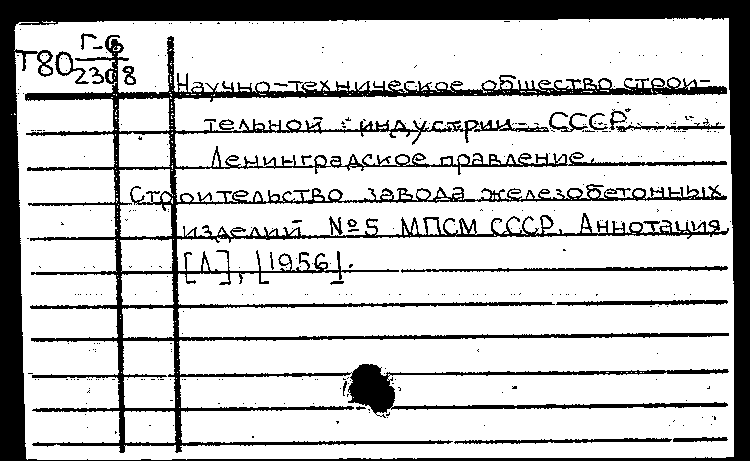 Т80 Г-6
2308
Научно-техническое общество строи-
тельной индустрии СССР.
Ленинградское правление.
Строительство завода железобетонных
изделий №5 МПСМ СССР. Аннотация.
[Л.], [1956].